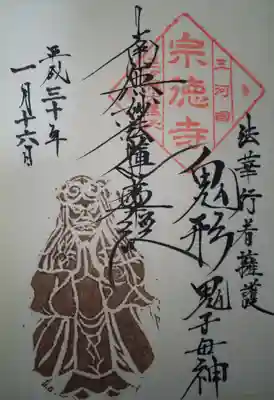 法華行者擁護
鬼形 鬼子母神
三河國
宗徳寺
南無妙法蓮華経
平成三十年
一月廿六日